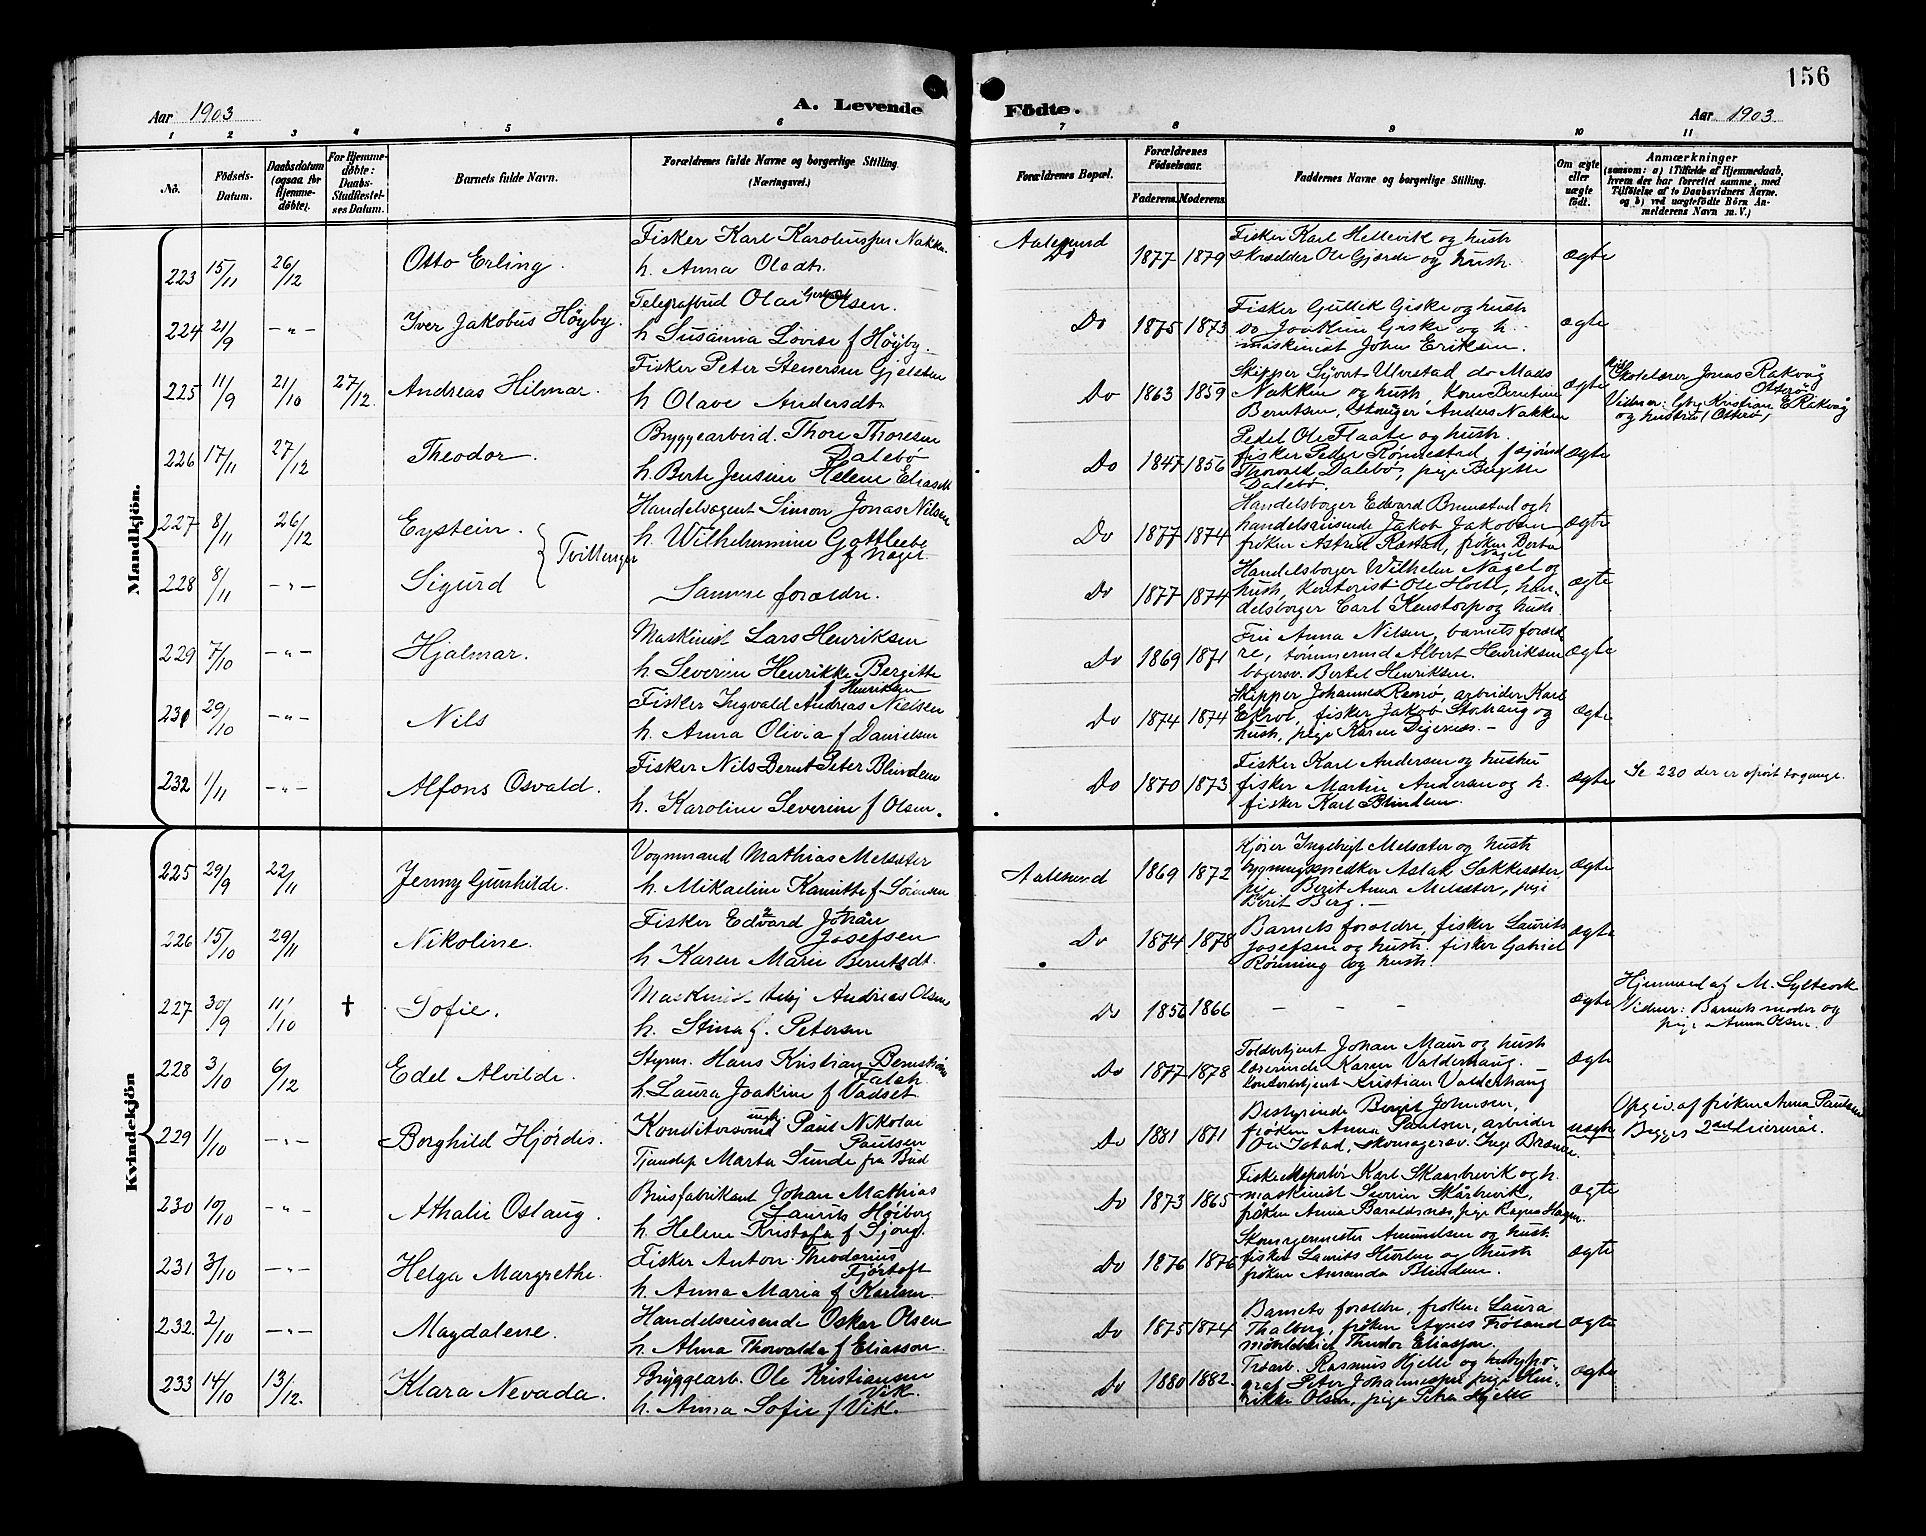 156
Aar 1903
A. Levende
Födte.
Aar 1903
1 2 3 4 5 6 7 8 9 10 11
No.
Födsels-Datum.
Daabsdatum (ogsaa for Hjemme-döbte).
For Hjemme-döbte: Daabs-Stadfæstel-ses Datum.
Barnets fulde Navn.
Forældrenes fulde Navne og borgerlige Stilling. (Næringsvei.)
Forældrenes Bopæl.
Forældrenes Födselsaar.
Faderens. Moderens.
Faddernes Navne og borgerlige Stilling.
Om ægte eller uægte födt.
Anmærkninger
(saasom: a) i Tilfælde af Hjemmedaab, hvem der har forrettet samme, med Tilföielse af to Daabsvidners Navne, og b) ved uægtefödte Börn Anmelderens Navn m. V.)
Mandkjön.
223 15/11 26/12 Otto Erling.
Fisker Karl Karoliusper Nakke
h. Anna Olsdtr.
Aalesund
Do 1877 1879
Fisker Karl Hellevik og hustr
skrædder Ole Gjærde og hustr.
ægte
224 21/9 -"- Iver Jakobus Höyby.
Telegrafbud Olai Olsen
h Susanna Lovise f Höyby.
Do 1875 1873
Fisker Gullik Giske og hustr
do Joakim Giske og h.
maskinist John Eriksen.
ægte
225 11/9 21/10 27/12 Andreas Hilmar.
Fisker Peter Stenersen Gjelsten
h Olave Andersdtr
Do 1863 1859
Skipper Sivert Ulvestad do Mads
Nakken og hustr, Kone Berntine
Berntsen, Anders Nakken
ægte
Skolelærer Jonas Rakvåg
Otterö
Vidner: Kristian E Rakvåg
og hustru (Otterö)
226 17/11 27/12 Theodor.
Bryggearbeid. Thore Thoresen
Dalebö
h. Berte Jensine Helene Eliasdtr
Do 1847 1856
Pedel Ole Flaate og hustr.
fisker Peder Rönnestad,
Thorvald Dalebö, pige Birgitte
Dalebö.
ægte
227 8/11 26/12 Eystein. Tvillinger
Handelsagent Simon Jonas Nilsen
h. Wilhelmine Gottliebe
f Nagel.
Do 1877 1874
Handelsborger Edvard Brunstad og h
handelsreisende Jakob Jakobsen,
fröken Astrid Rastad, fröken Berta
Nagel
ægte
228 8/11 -"- Sigurd
Samme forældre.
Do 1877 1874
Handelsborger Wilhelm Nagel og
hust, kontorist Ole Holte, han-
delsborger Carl Kenstorp og hustr.
ægte
229 7/10 -"- Hjalmar.
Maskinist Lars Henriksen
h. Severine Henrikke Bergitte
f Henriksen
Do 1869 1871
Fru Anna Nilsen, barnets foræld-
re, tömmermd Albert Henriksen
bagersv. Bertel Henriksen.
ægte
231 29/10 -"- Nils
Fisker Ingvald Andreas Nielsen
h. Anna Olivia f Danielsen
Do 1874 1874
Skipper Johannes Remö, arbeider Karl
Ekrol, fisker Jakob Stohaug og
hustr, pige Karen Digernes.-
ægte
232 1/11 -"- Alfons Osvald.
Fisker Nils Bernt Peter Blindem
h. Karoline Severine f Olsen.
Do 1870 1873
Fisker Karl Andersen og hustru
fisker Martin Andersen og h.
fisker Karl Blindem.
ægte
Se 230 der er opfört to gange.
Kvindekjön
225 29/9 22/11 Jenny Gunhilde.
Vognmand Mathias Melsæter
h. Mikaeline Kamitte f Sörensen
Aalesund 1869 1872
Kjöier Ingebrigt Melsæter og hustr
bygningssnedker Aslak Sakkesæter,
pige Berit Anna Melsæter, pige
Berit Berg.-
ægte
226 15/10 29/11 Nikoline.
Fisker Edvard Johan
Josefsen
h Karen Marie Berntsdt.
Do 1874 1878
Barnets forældre, fisker Laurits
Josefsen og hustr. fisker Gabriel
Rönning og hustr.
ægte
227 30/9 11/10 † Sofie.
Andreas Olsen
h. Stina f. Petersen
Do 1856 1866
- - -
ægte
Hjemmed af M. Syltevik
Vidner: Barnets moder og
pige Anna Olsen.
228 3/10 6/12 Edel Alvilde.
Styrm. Hans Kristian Bernström
Falch
h. Laura Joakime f Vadset
Do 1877 1878
Toldbetjent Johan Maur og hustr
lærerinde Karen Valderhaug.
Kontorbetjent Kristian Valderhaug
ægte
229 1/10 -"- Borghild Hjördis.
Konditorsvend ungk Paul Nikolai
Paulsen
Tjenestep Marta Sunde fra Bud
Do 1881 1871
Bestyrinde Berit Johnsen,
fröken Anna Paulsen, arbeider
Ole Istad, skomagersv. Inge Brænne.
uægte
Opgiv af fröken Anna Paulsen
Begges 2det leiermål.
230 10/10 -"- Athalie Oslaug.
Brusfabrikant Johan Mathias
Laurits Höiberg
h. Helene Kristofa f Sjong.
Do 1873 1865
Fiskeexportör Karl Skaarbrevik og h.
maskinist Severin Skårbrevik,
fröken Anna Baraldsnes, pige Ragna Hagen.
ægte
231 3/10 -"- Helga Margrethe.
Fisker Anton Theodorius
Fjörtoft
h. Anna Maria f Karlsen.
Do 1876 1876
Skomagermester Amundsen og hustr
fisker Laurits Hurlen og hustr
fröken Amanda Blindem.
ægte
232. 2/10 -"- Magdalene.
Handelsreisende Oskar Olsen
h. Alma Thorvalda f Eliasson.
Do 1875 1874
Barnets forældre, fröken Laura
Thalberg, fröken Agnes Fröland
Theodor Eliasson.
ægte
233 14/10 13/12. Klara Nevada.
Bryggearb. Ole Kristiansen
Vik.
h. Anna Sofie f Vik.
Do 1880 1882.
Træarb. Rasmus Hjelle og h. typo-
graf Peter Johannespr pige Hen-
rikke Olsen, pige Petra Hjelle
ægte